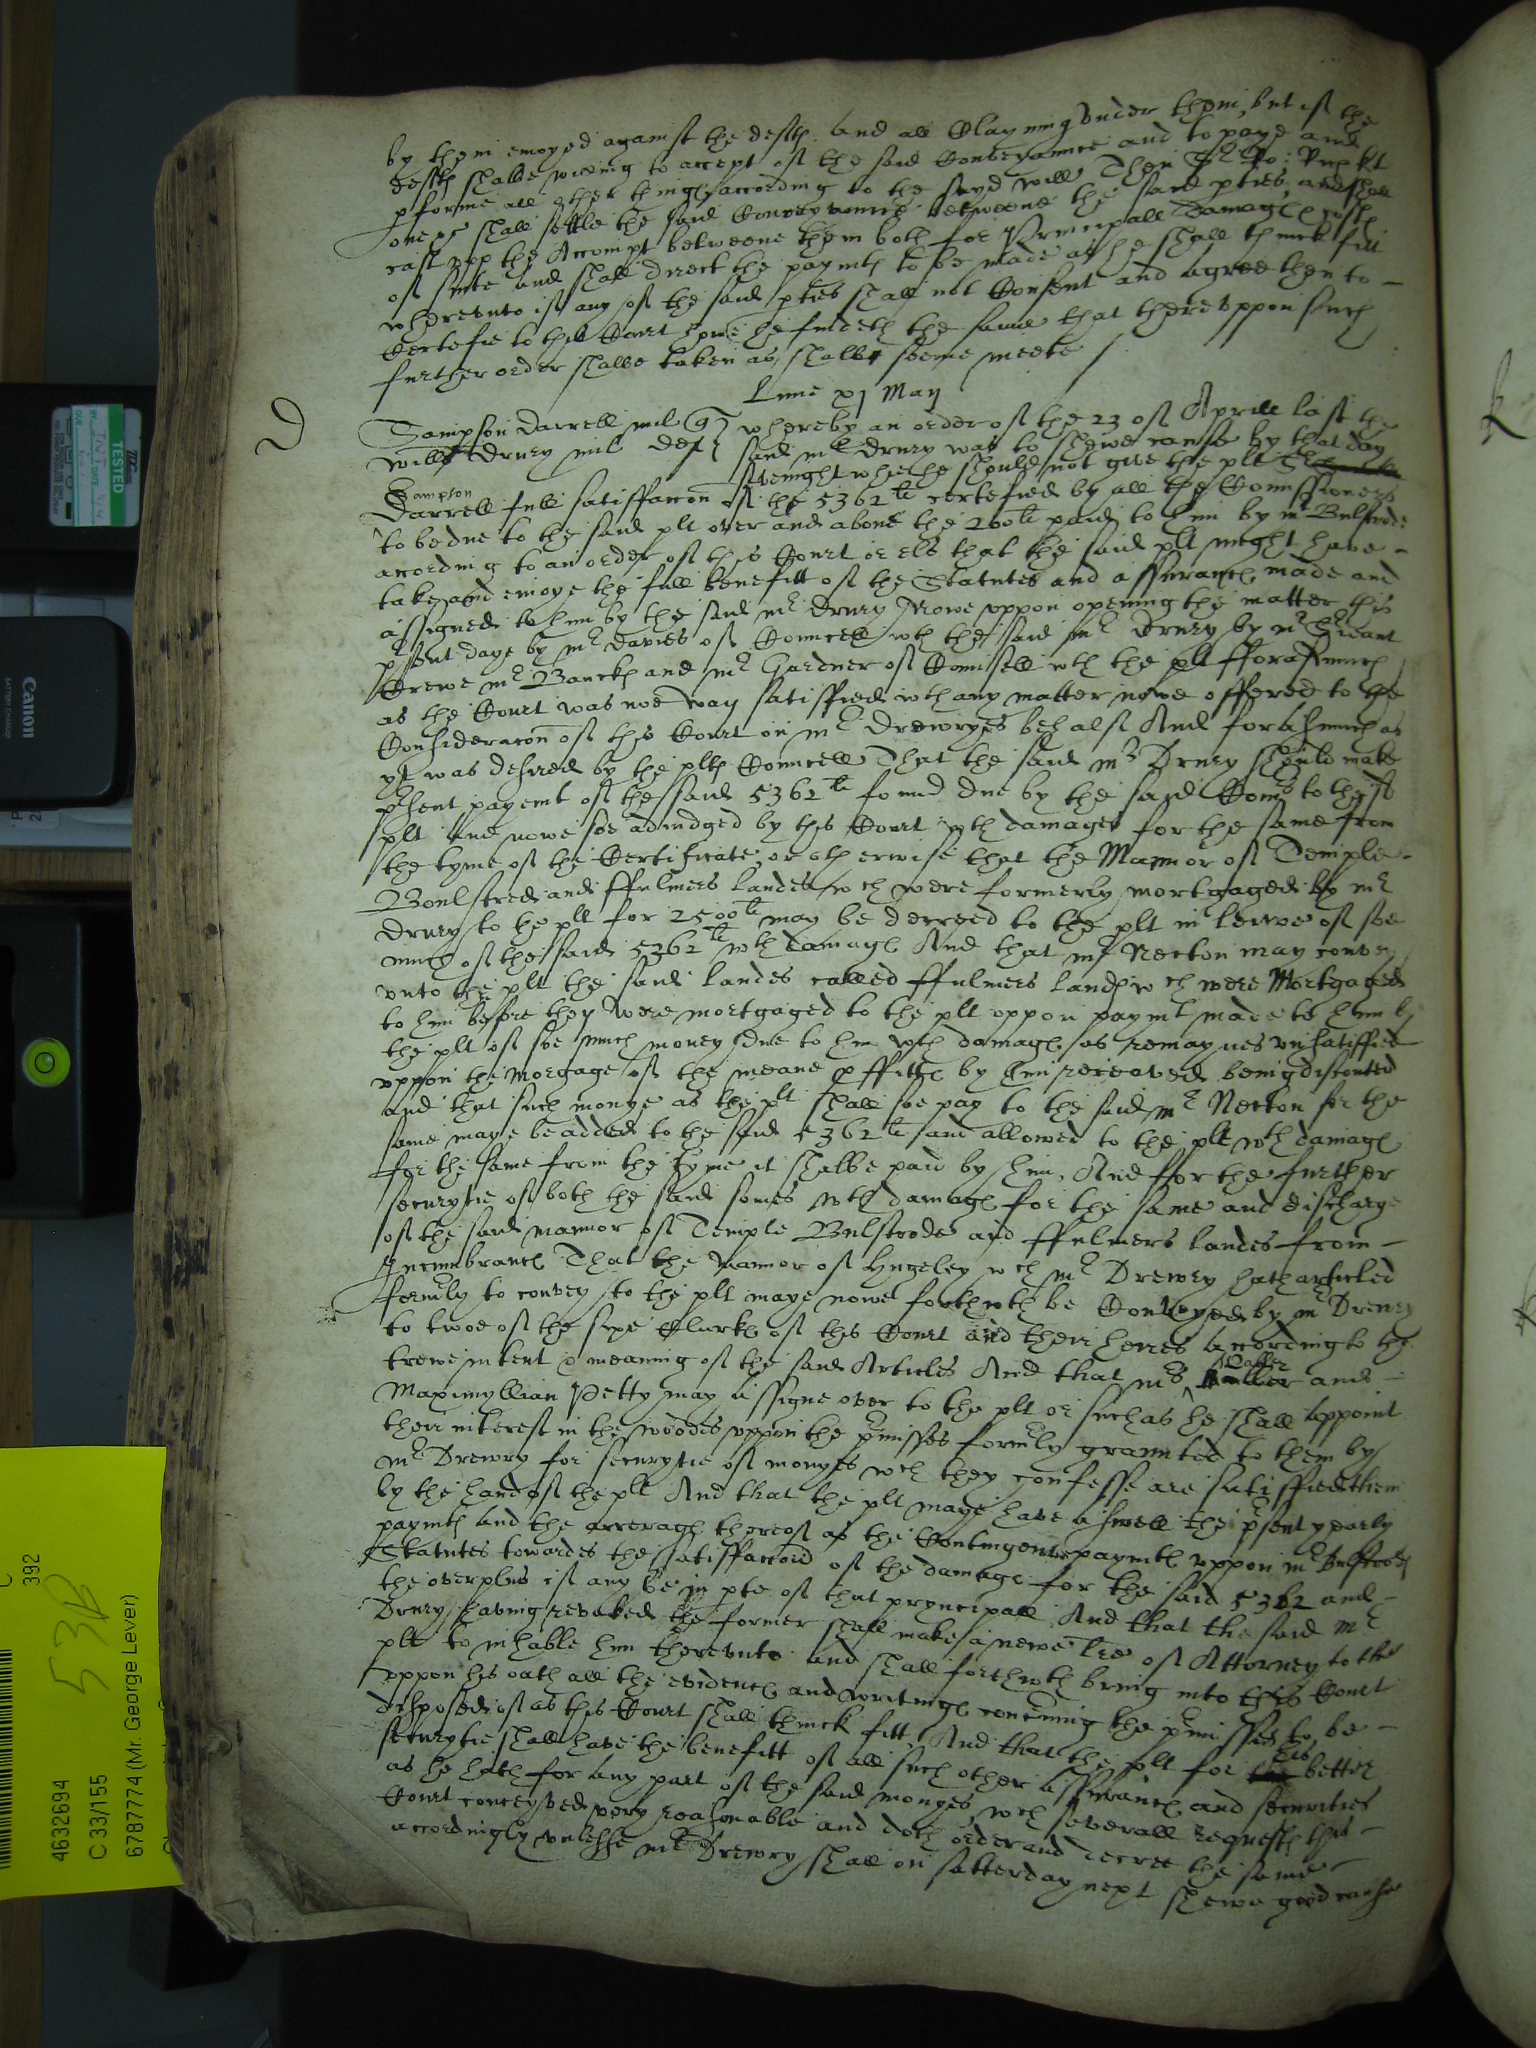 by them enioyed against the deftes and all Claymng vnder them, but if the
defts shalbe willing to accept of the said Conveyance and to paye and
pforme all other things according to the sayd will Then Sr Ro: Rich kt
one &c shall settle the said Conveyaunce betweene the said pties, and shall
cast vpp the Accompt betweene them both for Principall damages & costs
of suite and shall direct the paymts to be made as he shall thinck fitt
wherevnto if any of the said pties shall not Consent and agree then to
Certefie to this Court howe he findeth the same that therevppon such
further order shalbe taken as shalbe seeme meete /
Lune xj May
D
Sampson Darrell mil qr whereby an order of the 23 of Aprill last the
Willm Drury mil deft said mr Drury was to shewe cause by that day
sevenight whie he should not give the plt
Sampson
Darrell full satisfaccon of the 5362li certefied by all the Comissioners
to be due to the said plt over and above the 200li paid to him by mr Bulstrode
according to an order of this Court or els that the said plt might have
take and enioye the full benefitt of the Statutes and assurances made and
assigned to him by the said mr Drury Nowe vppon opening the matter this
psent daye by mr Davies of Councell wth the said mr Drury by mr Sriant
Crewe mr Banckes and mr Gardner of Counsell wth the plt fforasmuch
as the Court was noe way satisfied wth any matter nowe offered to the
Consideracon of this Court on mr Drewryes behalf And forasmuch as
yt was desired by the plts Councell That the said mr Drury should make
psent payemt of the said 5362li found due by the said Comrs to the sd
plt and nowe soe adiudged by this Court wth damages for the same from
the tyme of the Certificate, or otherwise that the Mannor of Temple
Boulstred and ffulmers landes wch were formerly mortgaged by mr
Drury to the plt for 2500li may be decreed to the plt in lewe of soe
much of the said 5362li wth damages And that mr Necton may convey
vnto the plt the said landes called ffulmers landes wch were Mortgaged
to him before they were mortgaged to the plt vppon paymt made to him by
the plt of soe much money due to him wth damages as remaynes vnsatisfied
vppon the Morgage of the meane pffitts by him receaved being discounted
and that such monye as the plt shall soe pay to the said mr Necton for the
same maye be added to the said 5362li and allowed to the plt wth damages
for the same from the tyme it shalbe paid by him, And for the further
securytie of both the said somes wth damages for the same and discharge
of the said mannor of Temple Bulstrode and ffulmers landes from
Incumbrances That the Mannor of Hugeley wch mr Drewry hath articled
formerly to convey to the plt maye nowe forthwth be Conveyed by mr Drewry
to twoe of the sixe Clarkes of this Court and their heires according to the
trewe intent & meaning of the said Articles And that mrs Waller and
Maximyllian Petty may assigne over to the plt or such as he shall appoint
their interest in the woodes vppon the pmisses formrly graunted to them by
mr Drewry for securytie of monyes wch they confesse are satisfied them
by the hand of the plt And that the plt maye have aswell the psent yearly
paymts and the arrerages thereof as the Contingent paymts vppon mr Bulstrodes
Statutes towardes the satisfaccon of the damages for the said 5362 and
the overplus if any be in pte of that pryncipall And that the said mr
Drury having revoked the former shall make a newe lre of Attorney to the
plt to inhable him therevnto and shall forthwth bring into this Court
vppon his oath all the evidences and writinges concrning the pmisses to be
disposed of as this Court shall thinck fitt, And that the plt for his better
securytie shall have the benefitt of all such other assurances and securities
as he hath for any part of the said monyes, wch severall requests this
Court conceyved very reasonable and doth order and decree the same
accordingly vnlesse mr Drewry shall on satterday next shewe good cause
TESTED
Canon
BATTERY CHARGER
C
392
53D
4632694
C 33/155
6787774 (Mr. George Lever)